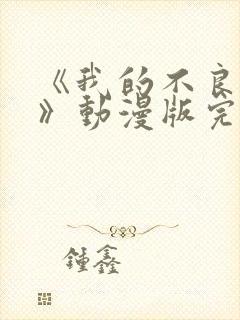 《我的不良
》動漫版完
鍾鑫